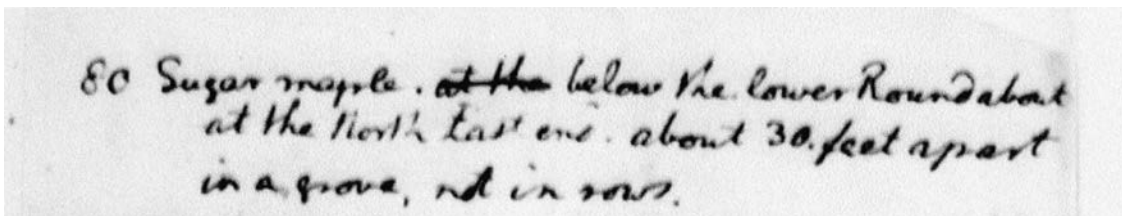 80 Sugar maple. at the below the lower Roundabout
at the North East end. about 30. feet apart
in a grove, not in rows.